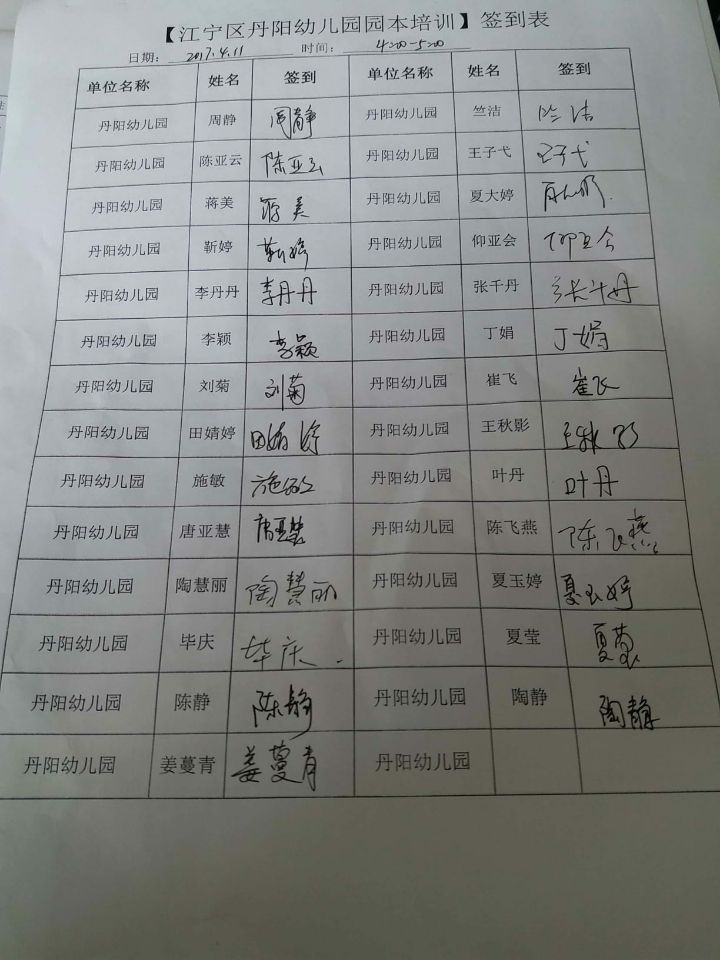 【江宁区丹阳幼儿园园本培训】签到表
日期: 2017.4.11 时间: 4:00-5:00
单位名称 姓名 签到 单位名称 姓名 签到
丹阳幼儿园 周静 周静 丹阳幼儿园 竺洁 竺洁
丹阳幼儿园 陈亚云 陈亚云 丹阳幼儿园 王子弋 王子弋
丹阳幼儿园 蒋美 蒋美 丹阳幼儿园 夏大婷 夏大婷
丹阳幼儿园 靳婷 靳婷 丹阳幼儿园 仰亚会 仰亚会
丹阳幼儿园 李丹丹 李丹丹 丹阳幼儿园 张千丹 张千丹
丹阳幼儿园 李颖 李颖 丹阳幼儿园 丁娟 丁娟
丹阳幼儿园 刘菊 刘菊 丹阳幼儿园 崔飞 崔飞
丹阳幼儿园 田婧婷 田婧婷 丹阳幼儿园 王秋影 王秋影
丹阳幼儿园 施敏 施敏 丹阳幼儿园 叶丹 叶丹
丹阳幼儿园 唐亚慧 唐亚慧 丹阳幼儿园 陈飞燕 陈飞燕
丹阳幼儿园 陶慧丽 陶慧丽 丹阳幼儿园 夏玉婷 夏玉婷
丹阳幼儿园 毕庆 毕庆 丹阳幼儿园 夏莹 夏莹
丹阳幼儿园 陈静 陈静 丹阳幼儿园 陶静 陶静
丹阳幼儿园 姜蔓青 姜蔓青 丹阳幼儿园